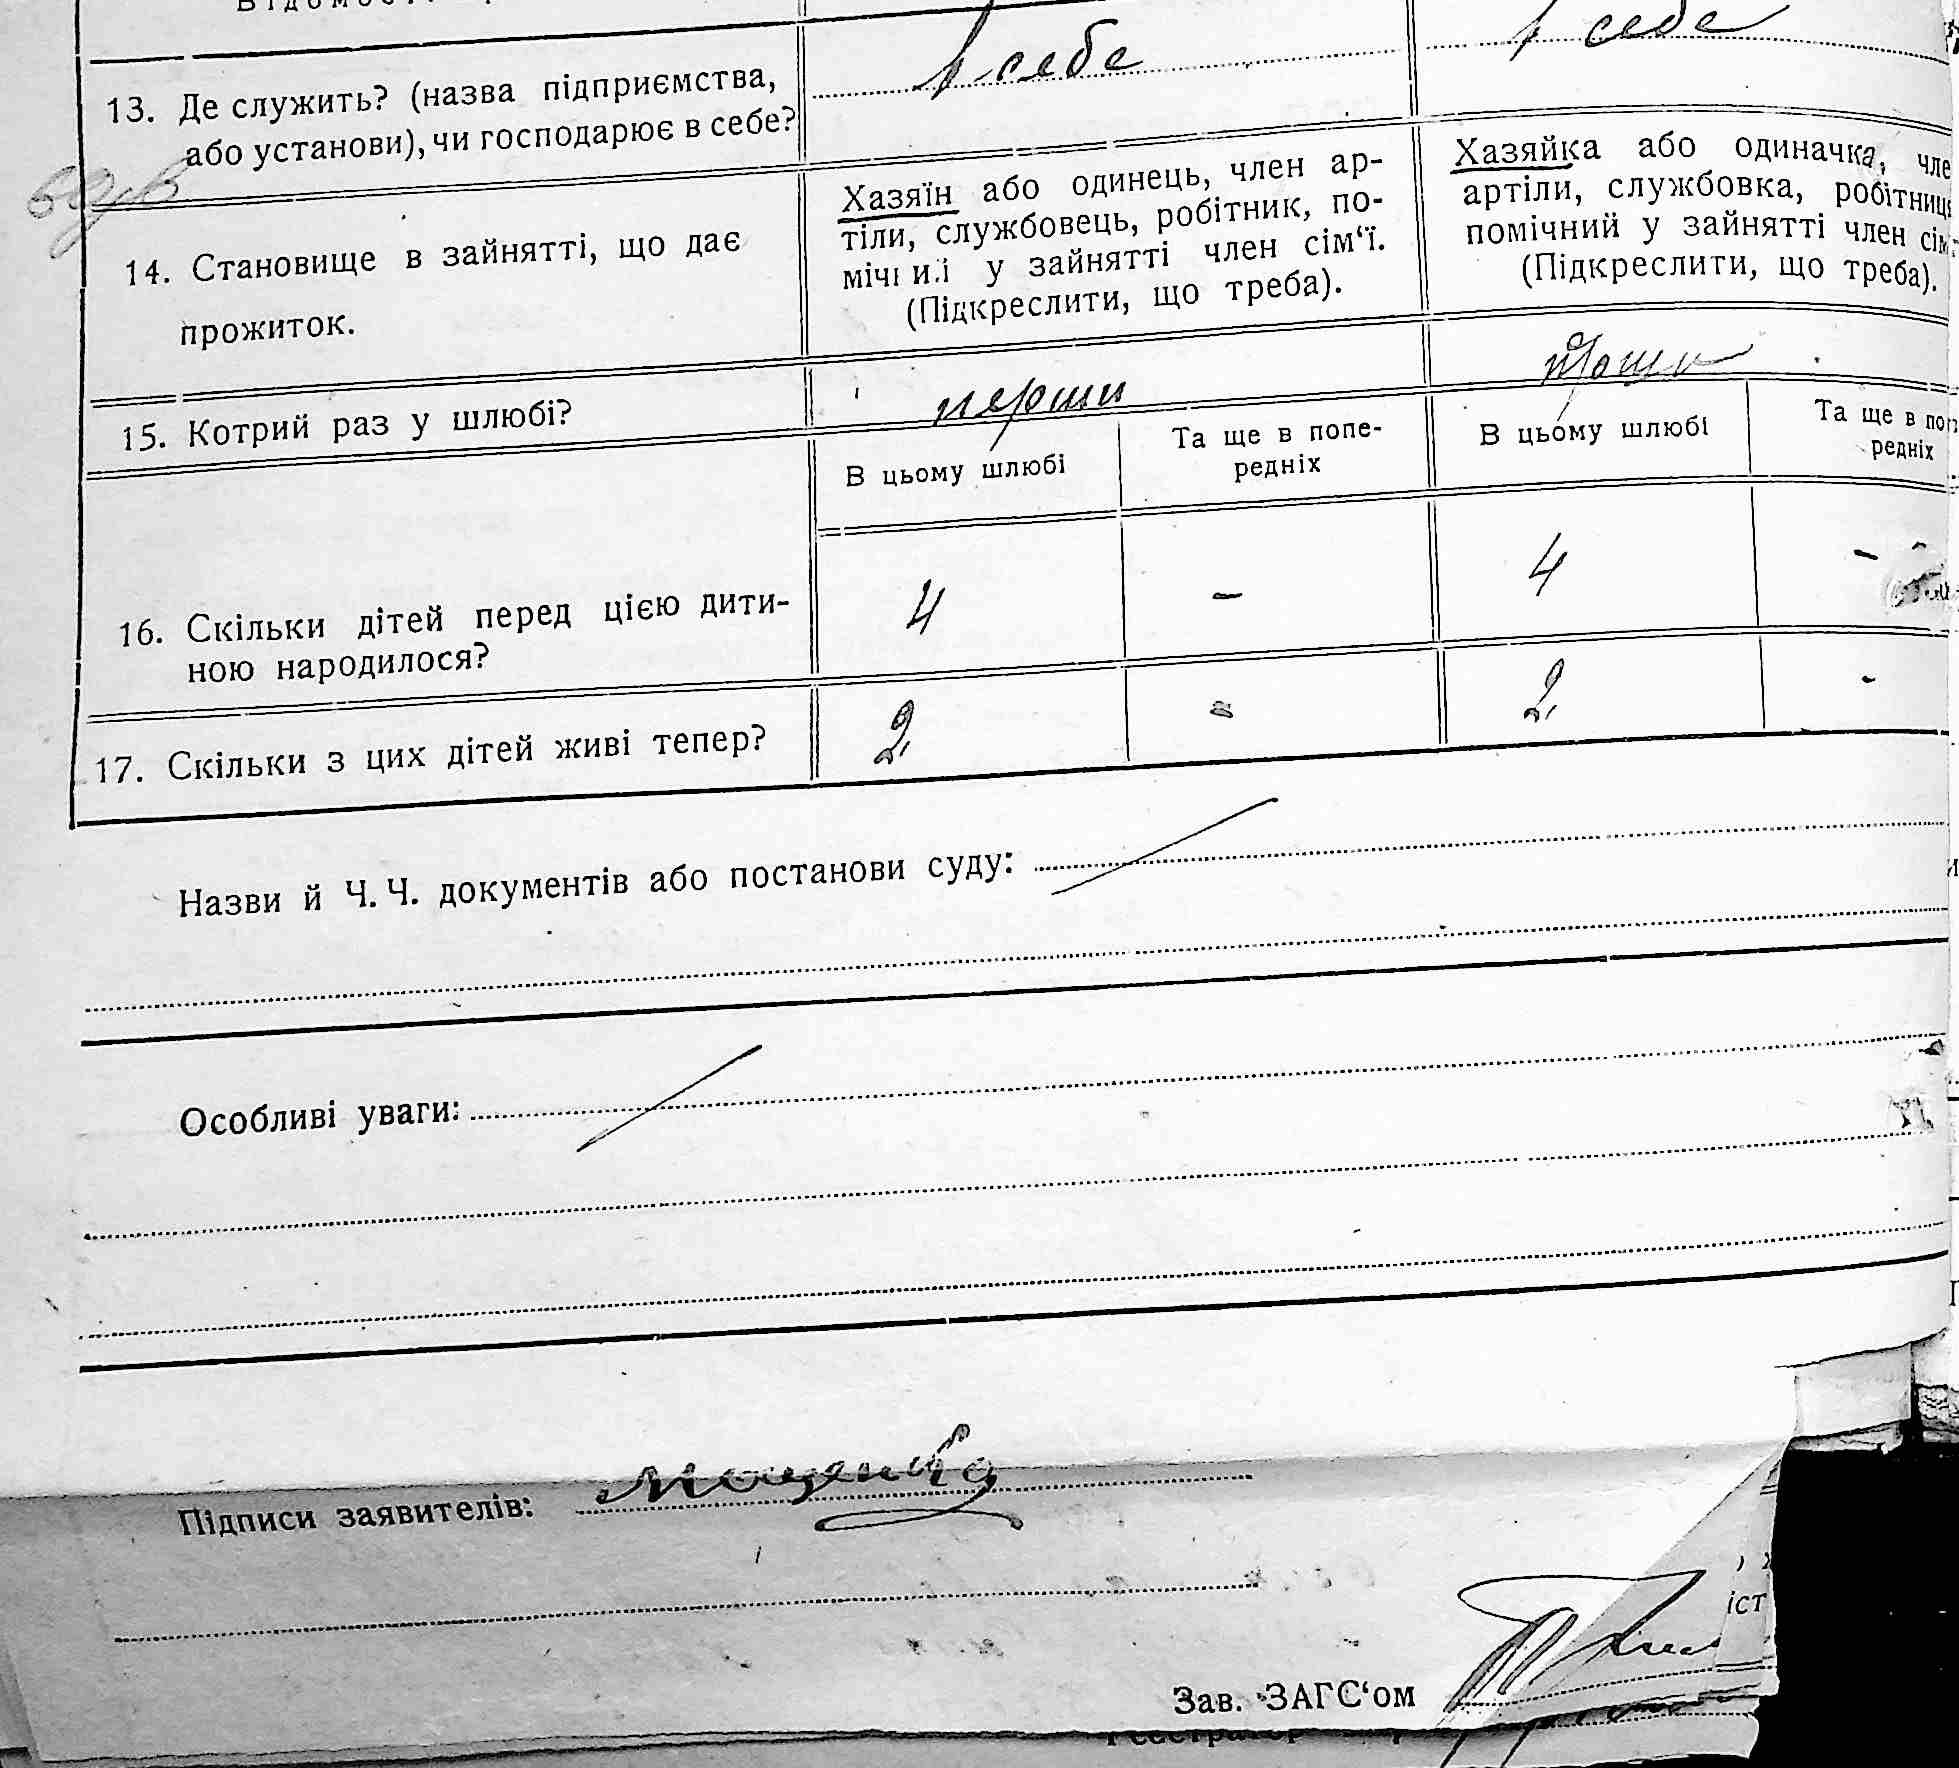 в себе в себе
13. Де служить? (назва підприємства,
або установи), чи господарює в себе?
14. Становище в зайнятті, що дає
прожиток.
Хазяїн або одинець, член ар-
тіли, службовець, робітник, по-
мічний у зайнятті член сім'ї.
(Підкреслити, що треба).
Хазяйка або одиначка, чле
артіли, службовка, робітниця
помічний у зайнятті член сім
(Підкреслити, що треба).
15. Котрий раз у шлюбі?
перши
В цьому шлюбі
Та ще в попе-
редніх
В цьому шлюбі
Та ще в поп
редніх
16. Скільки дітей перед цією дити-
ною народилося?
4 - 4 -
17. Скільки з цих дітей живі тепер?
2 - 2 -
Назви й Ч. Ч. документів або постанови суду:
Особливі уваги:
Підписи заявителів:
Зав. ЗАГС'ом